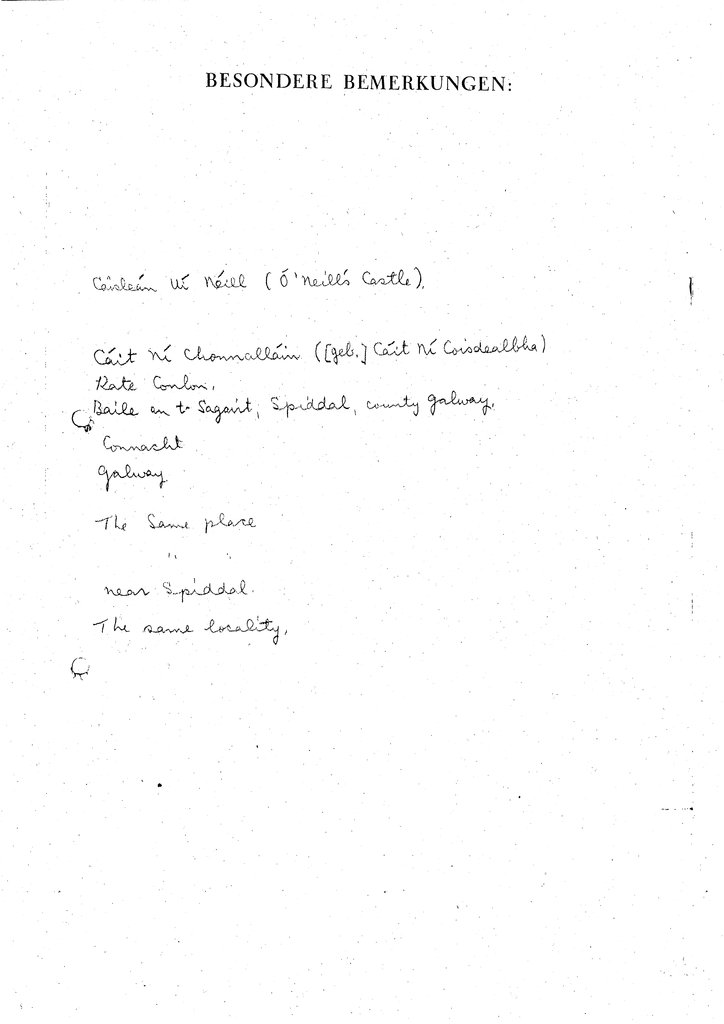 BESONDERE BEMERKUNGEN:
Cáisleán Uí Néill (Ó'Neill's Castle),
Cáit Ní Chonnalláin ([geb.] Cáit Ní Coisdealbha)
Kate Conlon,
Baile an t-Sagairt, Spiddal, county Galway.
Connacht
Galway
The Same place
" "
near Spiddal.
The same locality,